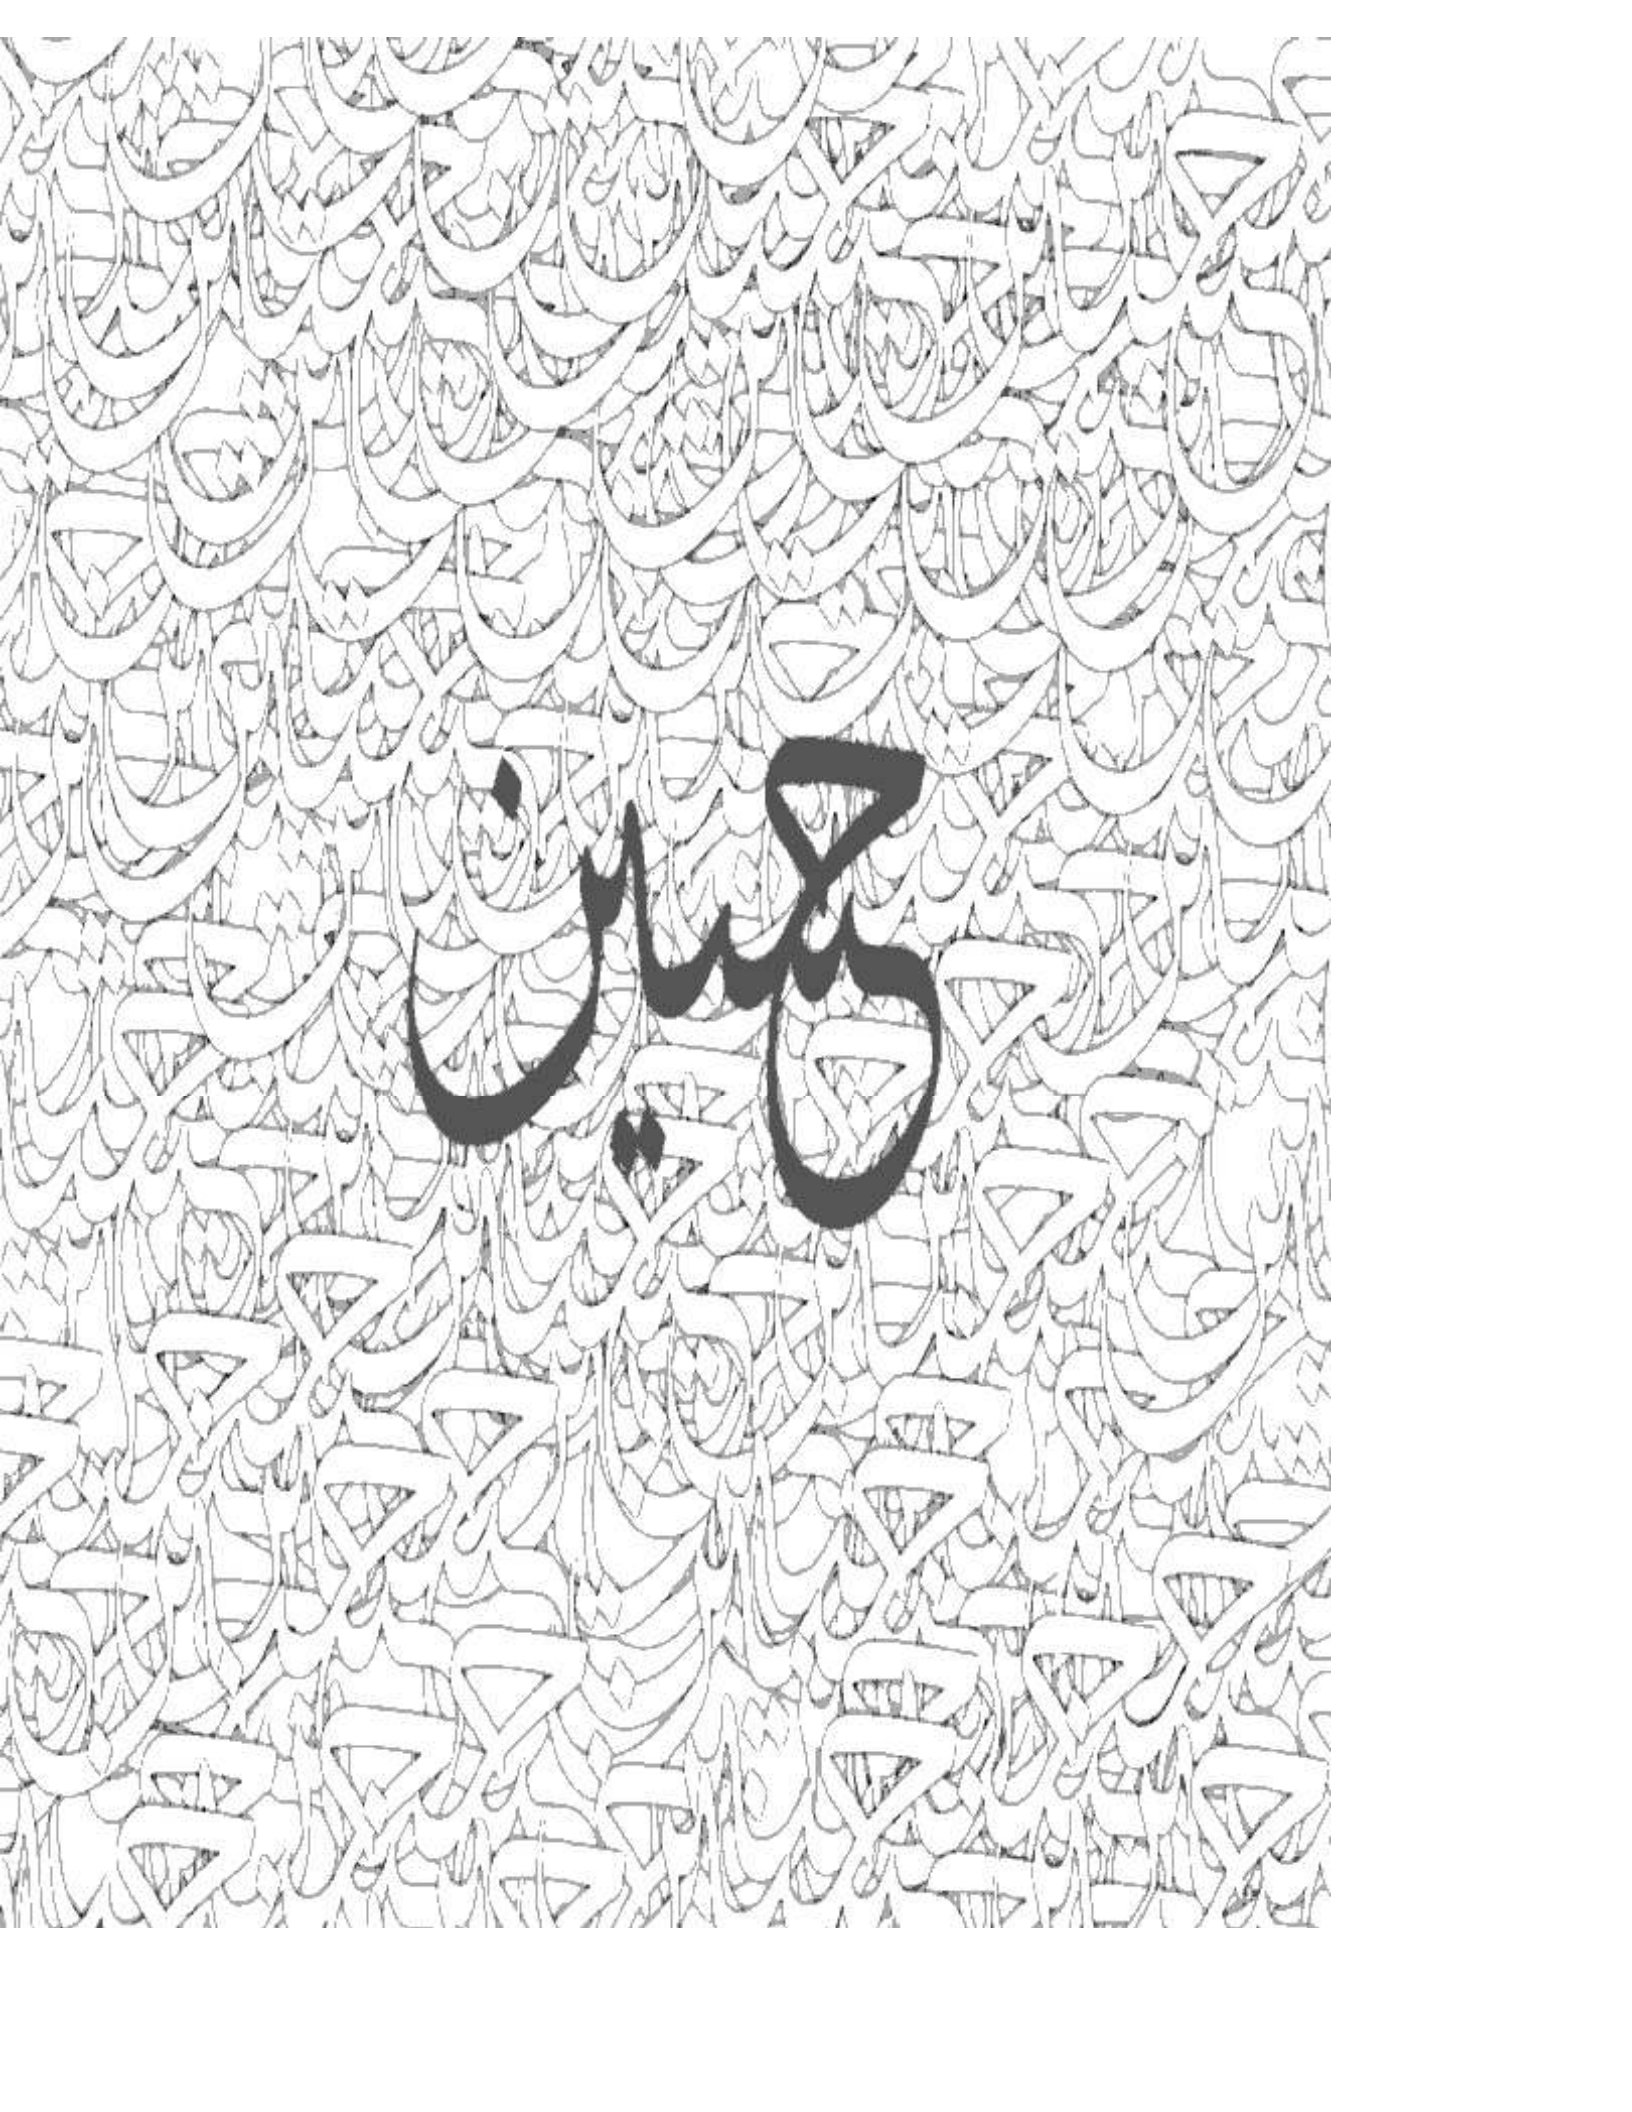 حسین